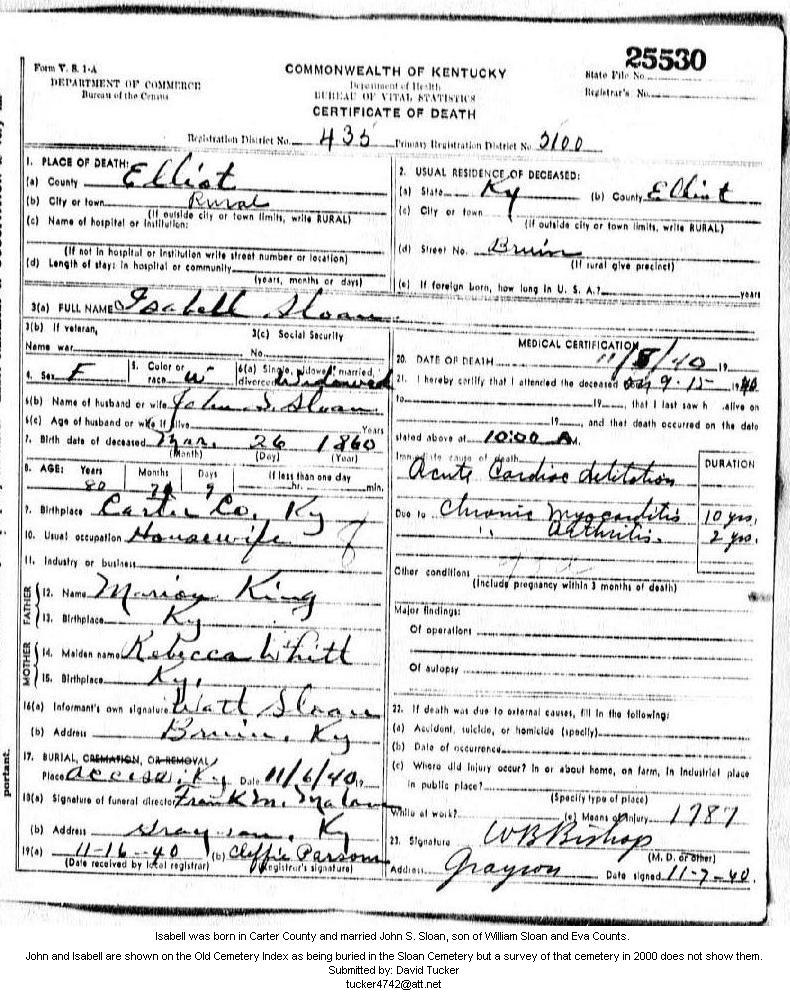 25530
Form V. S. 1-A
DEPARTMENT OF COMMERCE
Bureau of the Census
COMMONWEALTH OF KENTUCKY
Department of Health
BUREAU OF VITAL STATISTICS
CERTIFICATE OF DEATH
State File No.
Registrar's No.
Registration District No. 435 Primary Registration District No. 3100
1. PLACE OF DEATH:
(a) County Elliot
(b) City or town Rural
(If outside city or town limits, write RURAL)
(c) Name of hospital or institution:
(If not in hospital or institution write street number or location)
(d) Length of stay: In hospital or community
(years, months or days)
2. USUAL RESIDENCE OF DECEASED:
(a) State Ky (b) County Elliot
(c) City or town
(If outside city or town limits, write RURAL)
(d) Street No. Bruin
(If rural give precinct)
(e) If foreign born, how long in U. S. A.? years
3(a) FULL NAME Isabell Sloan
3(b) If veteran,
Name war
3(c) Social Security
No.
4. Sex F
5. Color or race W
6(a) Single, widowed, married, divorced Widowed
6(b) Name of husband or wife John S. Sloan
6(c) Age of husband or wife if alive Years
7. Birth date of deceased Mar. 26 1860
(Month) (Day) (Year)
8. AGE: Years Months Days If less than one day
80 9 hr. min.
9. Birthplace Carter Co, Ky
10. Usual occupation Housewife
11. Industry or business
FATHER
12. Name Marion King
13. Birthplace Ky
MOTHER
14. Maiden name Rebecca Whitt
15. Birthplace Ky.
16(a) Informant's own signature Watt Sloan
(b) Address Bruin, Ky
17. BURIAL, CREMATION, OR REMOVAL
Place Ky Date 11/6/40, 19
18(a) Signature of funeral director Frank M. Malone
(b) Address Grayson, Ky
19(a) 11-16-40 (b) Cleffie Parsons
(Date received by local registrar) (Registrar's signature)
MEDICAL CERTIFICATION
20. DATE OF DEATH 11/5/40 19
21. I hereby certify that I attended the deceased on 9-15 1940
to 19 , that I last saw h alive on
19 , and that death occurred on the date
stated above at 10:00 A M.
Immediate cause of death DURATION
Acute Cardiac
Due to Chronic Myocarditis 10 yrs.
" Arthritis. 2 yrs.
Other conditions
(Include pregnancy within 3 months of death)
Major findings:
Of operations
Of autopsy
22. If death was due to external causes, fill in the following:
(a) Accident, suicide, or homicide (specify)
(b) Date of occurrence
(c) Where did injury occur? In or about home, on farm, in industrial place
in public place?
(Specify type of place)
While at work? (e) Means of injury 1787
23. Signature WB Bishop
(M. D. or other)
Address Grayson Date signed 11-7-40.
portant.
Isabell was born in Carter County and married John S. Sloan, son of William Sloan and Eva Counts.
John and Isabell are shown on the Old Cemetery Index as being buried in the Sloan Cemetery but a survey of that cemetery in 2000 does not show them.
Submitted by: David Tucker
tucker4742@att.net